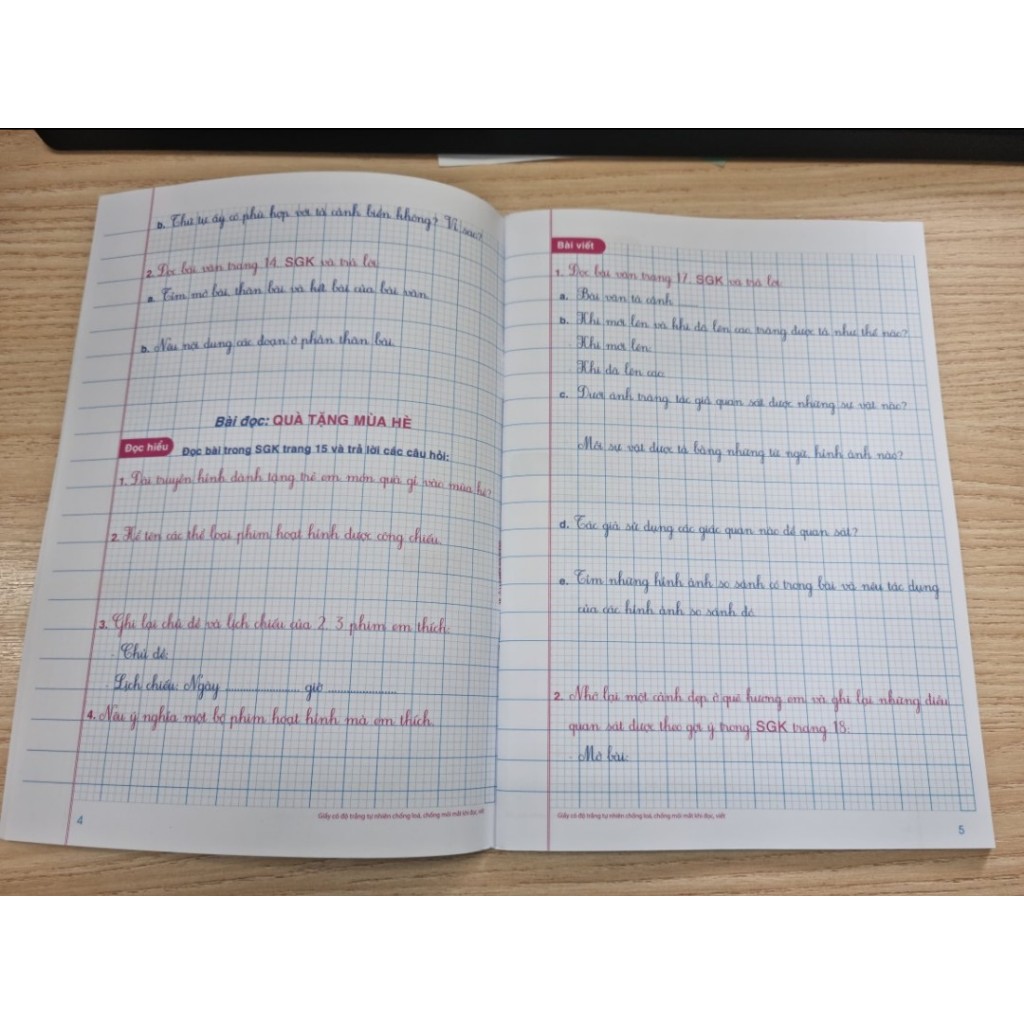 b. Thứ tự ấy có phù hợp với tả cảnh biển không? Vì sao?
2. Đọc bài văn trang 14, SGK và trả lời:
a. Tìm mở bài, thân bài và kết bài của bài văn.
b. Nêu nội dung các đoạn ở phần thân bài.
Bài đọc: QUÀ TẶNG MÙA HÈ
Đọc hiểu
Đọc bài trong SGK trang 15 và trả lời các câu hỏi:
1. Đài truyền hình dành tặng trẻ em món quà gì vào mùa hè?
2. Kể tên các thể loại phim hoạt hình được công chiếu.
3. Ghi lại chủ đề và lịch chiếu của 2, 3 phim em thích.
- Chủ đề:
- Lịch chiếu: Ngày .......................... giờ ........................
4. Nêu ý nghĩa một bộ phim hoạt hình mà em thích.
Giấy có độ trắng tự nhiên chống loá, chống mỏi mắt khi đọc, viết
4
Bài viết
1. Đọc bài văn trang 17, SGK và trả lời:
a. Bài văn tả cảnh .........
b. Khi mới lên và khi đã lên cao, trăng được tả như thế nào?
- Khi mới lên:
- Khi đã lên cao:
c. Dưới ánh trăng, tác giả quan sát được những sự vật nào?
Mỗi sự vật được tả bằng những từ ngữ, hình ảnh nào?
d. Tác giả sử dụng các giác quan nào để quan sát?
e. Tìm những hình ảnh so sánh có trong bài và nêu tác dụng
của các hình ảnh so sánh đó.
2. Nhớ lại một cảnh đẹp ở quê hương em và ghi lại những điều
quan sát được theo gợi ý trong SGK trang 18:
- Mở bài:
Giấy có độ trắng tự nhiên chống loá, chống mỏi mắt khi đọc, viết
5